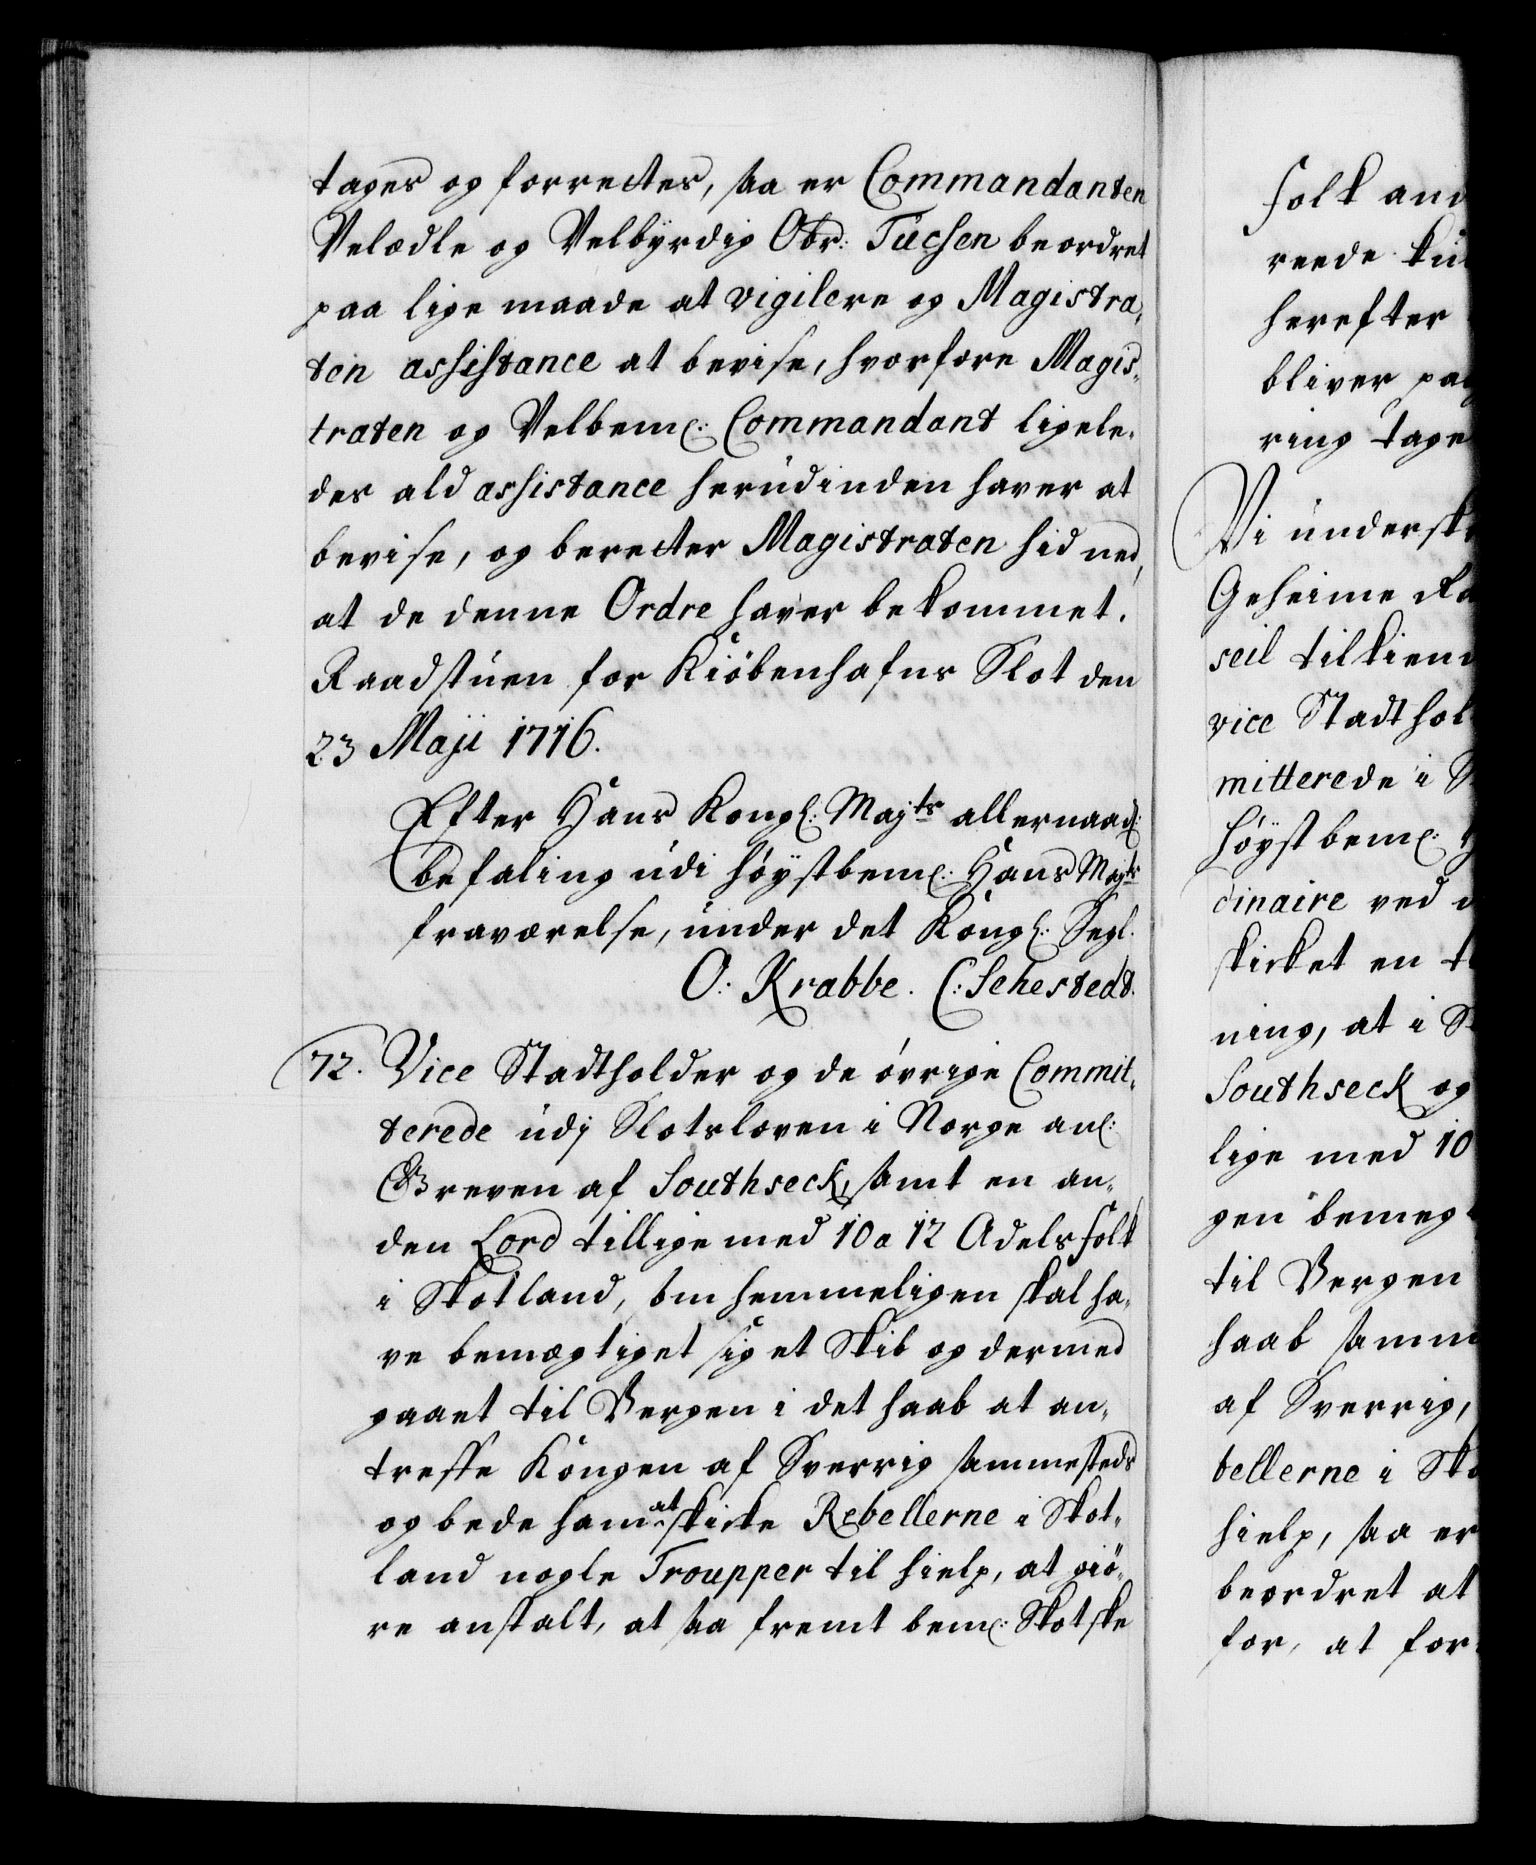 tages og forrettes, saa er Commandanten
Velædle og Velbÿrdig Obr: Tücsen beordret
paa lige maade at vigilere og Magistra,
ten assistance at bevise, hvorfore Magis„
traten og Velbem: Commandant ligele„
des ald assistance herudinden haver at
bevise, og beretter Magistraten hid ned,
at de denne Ordre haver bekommet.
Raadstuen for Kiöbenhafns Slot den
23 Maji 1716.
Efter Hans Kongl: Mayts allernaad:
befaling udi höystbem: Hans Mayts
fraværelse, under det Kongl: Segl.
O: Krabbe. C: Sehestedt.
72. Vice Stadtholder og de övrige Commit„
terede udj Slotsloven i Norge anl:
Greven af Southseck, samt en an„
den Lord tillige med 10 a 12 Adelsfolk
i Skotland, som hemmeligen skal ha„
ve bemægtiget sig et Skib og dermed
gaaet til Bergen i det haab at an„
treffe Kongen af Sverrig sammesteds
og bede ham at skicke Rebellerne i Skot„
land nogle Troupper til hielp, at giö„
re anstalt, at saa fremt bem: Skotske
folk and
reede
herefter
bliver paa
ring tage
Vi undersk
Geheime Ra
seil tilkiend
vice Stadthol
mitterede i S
höystbem: H
dinaire ved d
skicket en
ning, at i Sk
Southseck og
lige med 10
gen bemæg
til Bergen
haab samm
af Sverrig,
bellerne i Sko
hielp, saa er
beordret at
for, at for